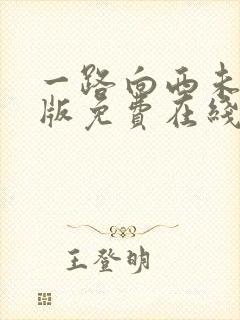 一路向西未
版免费在线
王登明